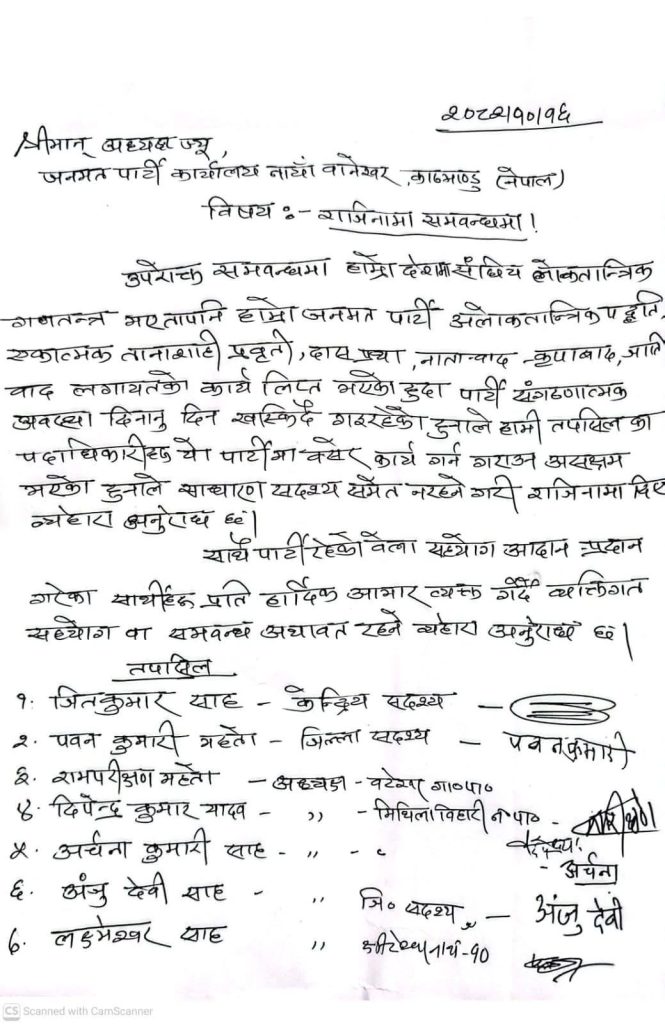 २०८२।१०।१६
श्रीमान् अध्यक्ष ज्यू,
जनमत पार्टी कार्यालय नायाँ वानेश्वर, काठमाण्डु (नेपाल)
विषय :- राजिनामा समवन्धमा !
उपरोक्त समवन्धमा हाम्रो देशमा संघिय लोकतान्त्रिक
गणतन्त्र भए तापनि हाम्रो जनमत पार्टी अलोकतान्त्रिक पद्धति,
एकात्मक तानाशाही प्रवृती, दास प्रथा, नातावाद कृपावाद, जाति
वाद लगायतको कार्य लिप्त भएको हुदा पार्टी संगठणात्मक
अवस्था दिनानु दिन खस्किदै गइरहेको हुनाले हामी तपसिल का
पदाधिकारीहरु यो पार्टीमा वसेर कार्य गर्न गराउन असक्षम
भएको हुनाले साधारण सदश्य समेत नरहने गरी राजिनामा दिएको
व्यहोरा अनुरोध छ।
साथै पार्टी रहेको वेला सहयोग आदान प्रदान
गरेका साथीहरु प्रति हार्दिक आभार व्यक्त गर्दै व्यक्तिगत
सहयोग वा समवन्ध अथावत रहने व्यहोरा अनुरोध छ।
तपसिल
१. जितकुमार साह - केन्द्रिय सदश्य -
२. पवन कुमारी महतो - जिल्ला सदश्य - पवनकुमारी
३. रामपरीक्षण महतो - अध्यक्ष - वटेश्वर गा०पा०
४. दिपेन्द्र कुमार यादव - ,, - मिथिला विहारी न०पा० -
५. अर्चना कुमारी साह - ,, - - अर्चना
६. अंजु देवी साह - ,, जि० सदश्य - अंजु देवी
७. लक्ष्मेश्वर साह ,, क्षीरेश्वरनाथ-१०
CS Scanned with CamScanner